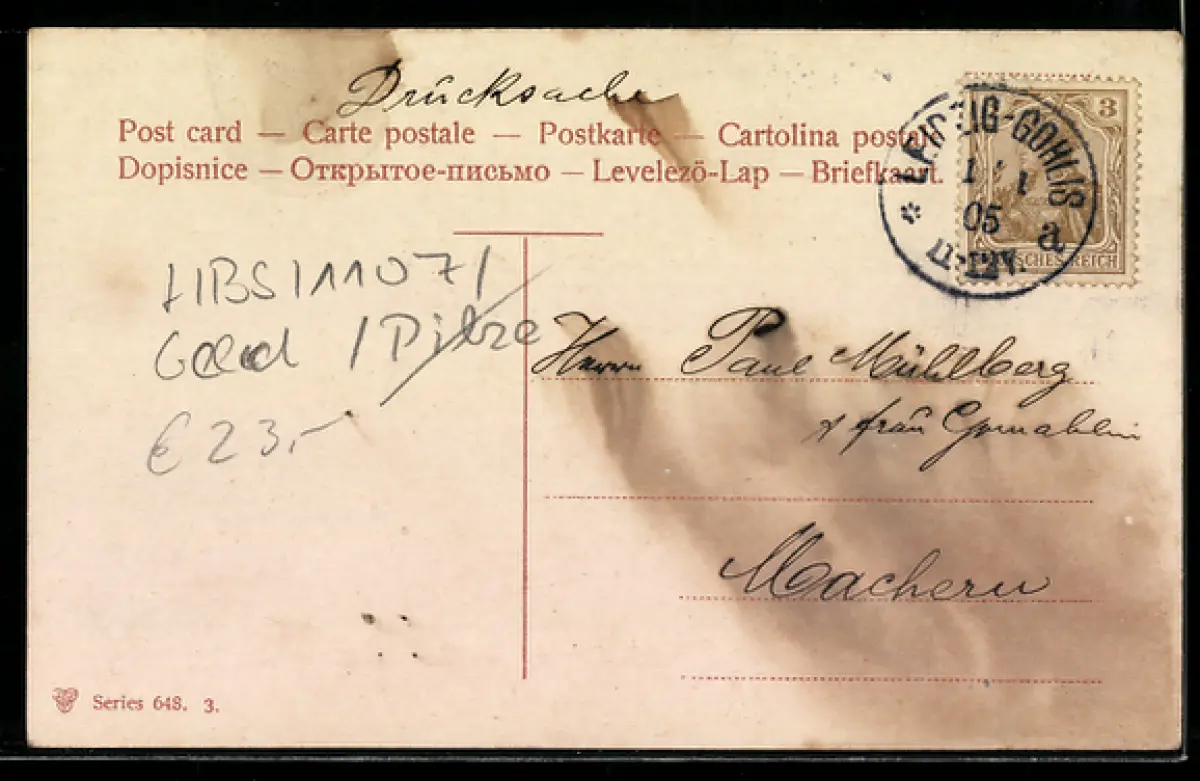 Drucksache
Post card — Carte postale — Postkarte — Cartolina postale
Dopisnice — Открытое-письмо — Levelezō-Lap — Briefkaart.
LEIPZIG-GOHLIS
1 1
05
a
3
REICH
HBS111071
Geld / Pilze
€ 23,-
Herrn Paul Mühlberg
& Frau Gemahlin
Machern
Series 648. 3.